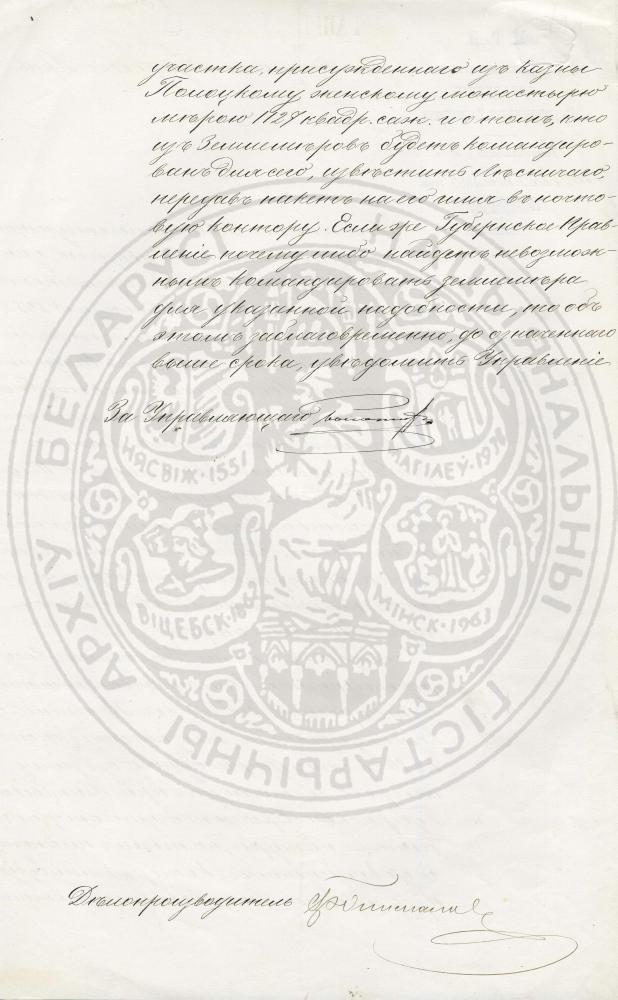 участка, присужденнаго изъ казны
Полоцкому женскому монастырю
мѣрою 1727 квадр. саж. и о томъ, кто
изъ Землемѣровъ будетъ командиро-
ванъ для сего, извѣстить Лѣсничаго,
передавъ пакетъ на его имя въ почто-
вую контору. Если же Губернское Прав-
леніе почему либо найдетъ невозмож-
нымъ командировать землемѣра
для указанной надобности, то объ
этомъ заблаговременно, до означеннаго
выше срока, увѣдомить Управленіе
За Управляющаго
Дѣлопроизводитель
НАЦЫЯНАЛЬНЫ ГІСТАРЫЧНЫ АРХІЎ БЕЛАРУСІ
НЯСВІЖ·1551
МАГІЛЕЎ·19
ВІЦЕБСК·1862
МІНСК·1963